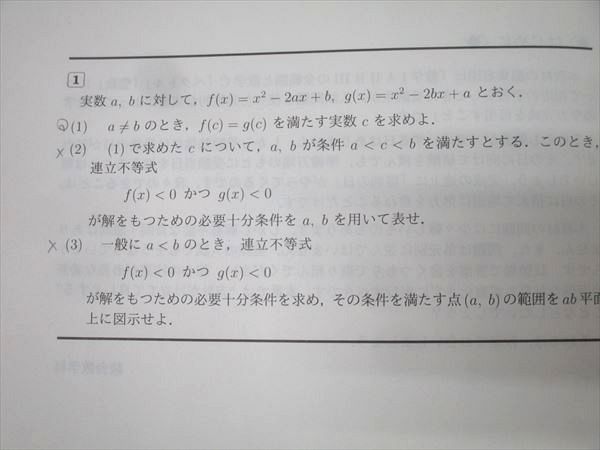 1
実数 a, b に対して, f(x) = x² − 2ax + b, g(x) = x² − 2bx + a とおく.
(1) a ≠ b のとき, f(c) = g(c) を満たす実数 c を求めよ.
(2) (1) で求めた c について, a, b が条件 a < c < b を満たすとする. このとき,
連立不等式
f(x) < 0 かつ g(x) < 0
が解をもつための必要十分条件を a, b を用いて表せ.
(3) 一般に a < b のとき, 連立不等式
f(x) < 0 かつ g(x) < 0
が解をもつための必要十分条件を求め, その条件を満たす点 (a, b) の範囲を ab 平面
上に図示せよ.